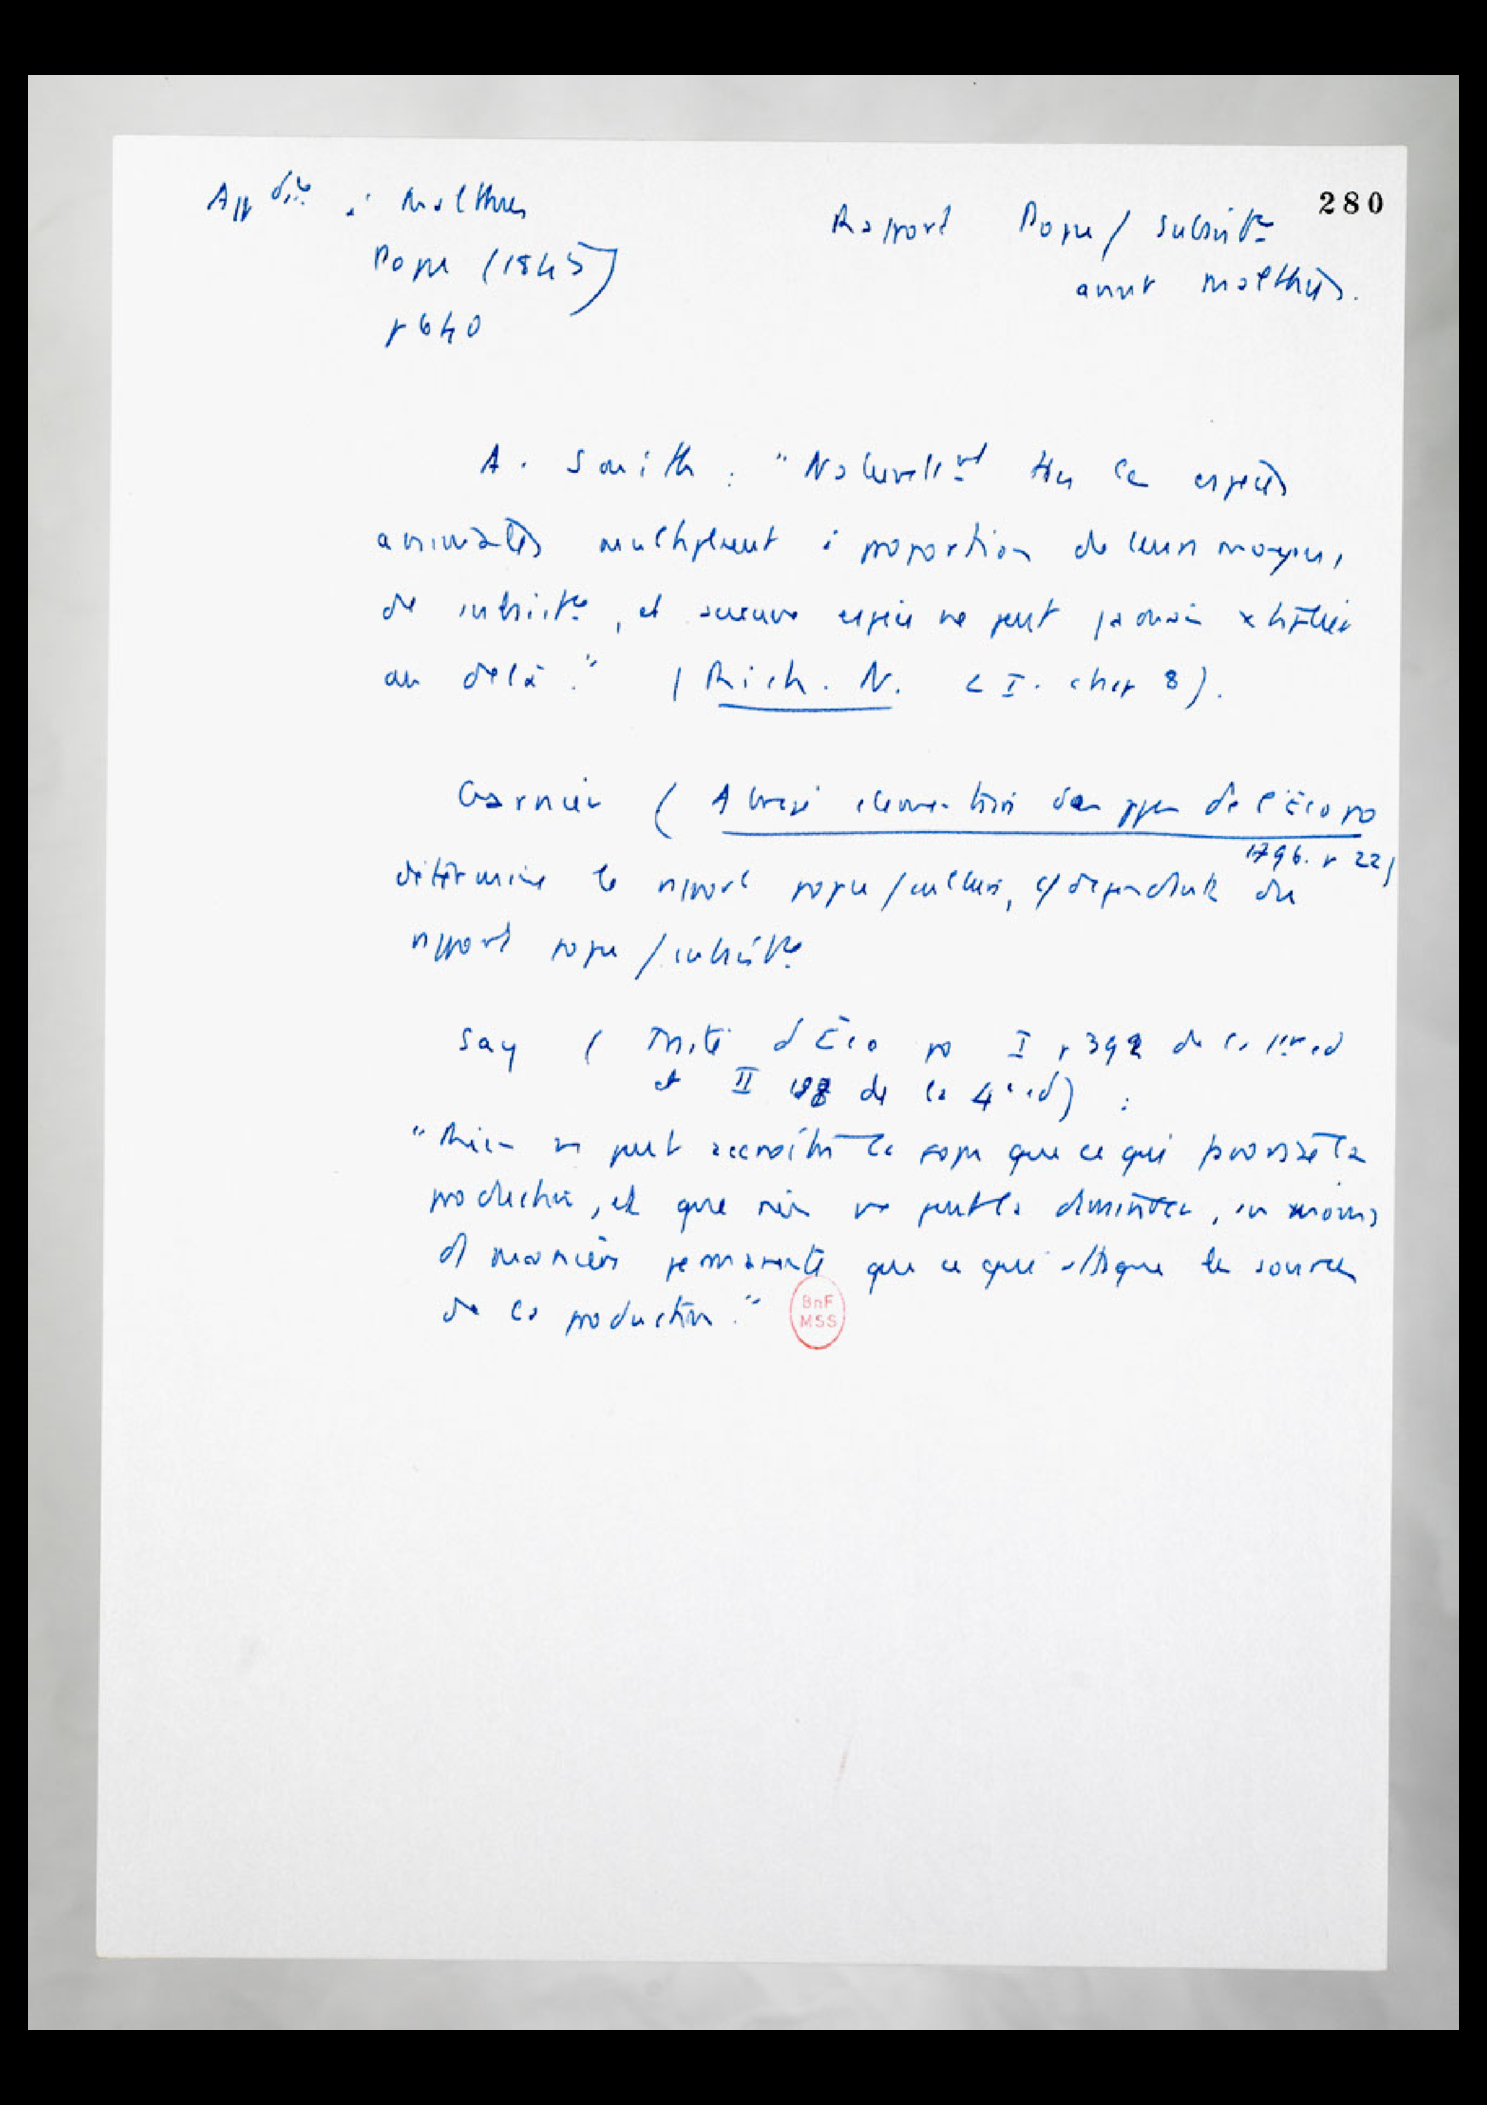 280
Appdice à Malthus
Popu (1845)
p 640
Rapport Popu / subsistce
avant Malthus.
A. Smith : "Naturellemt ttes les espèces
animales multiplient à proportion de leurs moyens
de subsistce, et aucune espèce ne peut jamais x tiplier
au delà." (Rich. N. L I. chap 8).
Garnier (Abrégé élémentaire des ppes de l'Éco po
1796. p 22)
détermine le rapport popu / culture, c/ dépendant du
rapport popu / subsistce
Say ( Traité d'Éco po I p 392 de la 1ère ed
et II 198 de la 4e ed) :
"Rien ne peut accroître la popu que ce qui favorise la
production, et que rien ne peut la diminuer, au moins
d manière permanente que ce qui attaque les sources
de la production."
BnF
MSS